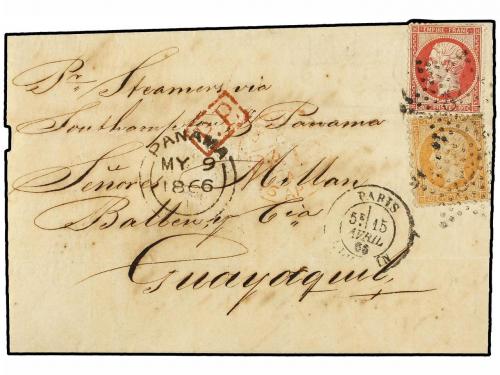 EMPIRE FRANC
Pr Steamers via
Southampton & Panama
P.P.
PANAMA
MY 9
1866
Señores Millan
Balten y Cia
Guayaquil
PARIS
5E 15
AVRIL
66